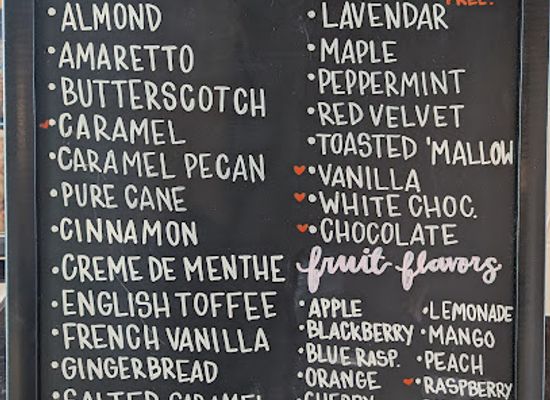 • ALMOND
• AMARETTO
• BUTTERSCOTCH
• CARAMEL
• CARAMEL PECAN
• PURE CANE
• CINNAMON
• CREME DE MENTHE
• ENGLISH TOFFEE
• FRENCH VANILLA
• GINGERBREAD
SALTED CARAMEL
FREE!
• LAVENDAR
• MAPLE
• PEPPERMINT
• RED VELVET
• TOASTED 'MALLOW
• VANILLA
• WHITE CHOC.
• CHOCOLATE
fruit flavors
• APPLE
• BLACKBERRY
• BLUE RASP.
• ORANGE
CHERRY
• LEMONADE
• MANGO
• PEACH
• RASPBERRY